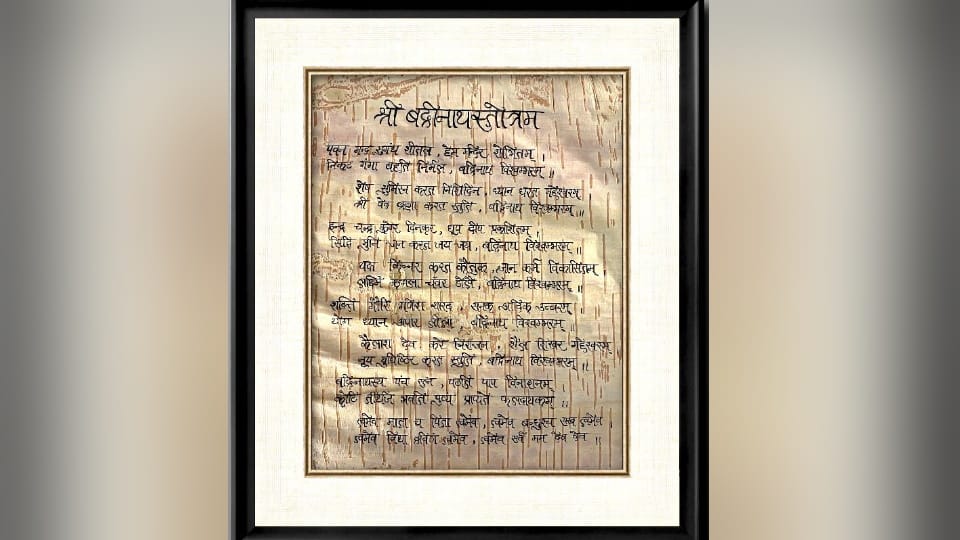 श्रीं बद्रीनाथस्तोत्रम
पवन मन्द सुगंध शीतल, हेम मन्दिर शोभितम् ।
निकट गंगा बहति निर्मल, बद्रिनाथ विश्वम्भरम् ॥
शेष सुमिरन करत निशिदिन, ध्यान धरत महेश्वरम् ।
श्री वेद ब्रह्मा करत स्तुति, बद्रिनाथ विश्वम्भरम् ॥
इन्द्र चन्द्र कुबेर दिनकर, धूप दीप प्रकाशितम् ।
सिद्धि मुनि जन करत जय जय, बद्रिनाथ विश्वम्भरम् ॥
यक्ष किन्नर करत कौतुक, ज्ञान कर्म विकासितम् ।
लक्ष्मि कमला चंवर डोले, बद्रिनाथ विश्वम्भरम् ॥
शक्ति गौरि गणेश शारद,
योग ध्यान अपार लीला, बद्रिनाथ विश्वम्भरम् ॥
कैलाश देव निरंजन, शैल शिखर महेश्वरम् ।
युधिष्ठिर करत स्तुति, बद्रिनाथ विश्वम्भरम् ॥
बद्रिनाथस्य पंच रत्न, पठति पाप विनाशनम् ।
कोटि पुण्य प्राप्यते फलदायकम् ॥
त्वमेव माता च पिता त्वमेव, त्वमेव बन्धुश्च सखा त्वमेव
त्वमेव विद्या द्रविणं त्वमेव, त्वमेव सर्वं मम देव देव ॥